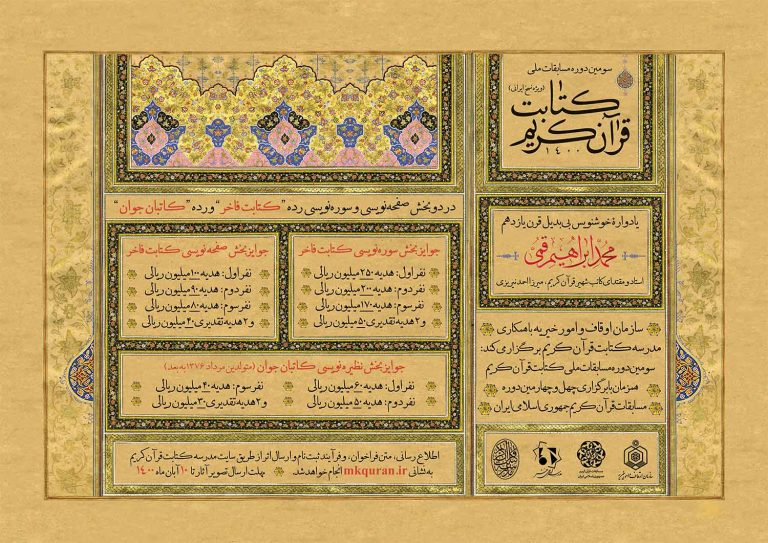 سومین دوره مسابقات ملی
کتابت
(ویژه نسخ ایرانی)
قرآن کریم
۱۴۰۰
یادواره خوشنویس بی‌بدیل قرن یازدهم
محمد ابراهیم قمی
استاد و مقتدای کاتب شهیر قرآن کریم، میرزا احمد نیریزی
سازمان اوقاف و امور خیریه با همکاری
مدرسه کتابت قرآن کریم برگزار می‌کند:
سومین دوره مسابقات ملی کتابت قرآن کریم
همزمان با برگزاری چهل و چهارمین دوره
مسابقات قرآن کریم جمهوری اسلامی ایران
در دو بخش صفحه‌نویسی و سوره‌نویسی رده "کتابت فاخر" و رده "کاتبان جوان"
جوایز بخش سوره‌نویسی کتابت فاخر
نفر اول: هدیه ۲۵۰ میلیون ریالی
نفر دوم: هدیه ۲۰۰ میلیون ریالی
نفر سوم: هدیه ۱۷۰ میلیون ریالی
و ۲ هدیه تقدیری ۵۰ میلیون ریالی
جوایز بخش صفحه‌نویسی کتابت فاخر
نفر اول: هدیه ۱۰۰ میلیون ریالی
نفر دوم: هدیه ۹۰ میلیون ریالی
نفر سوم: هدیه ۸۰ میلیون ریالی
و ۲ هدیه تقدیری ۴۰ میلیون ریالی
جوایز بخش نظیره‌نویسی کاتبان جوان (متولدین مرداد ۱۳۷۶ به بعد)
نفر اول: هدیه ۶۰ میلیون ریالی
نفر سوم: هدیه ۴۰ میلیون ریالی
نفر دوم: هدیه ۵۰ میلیون ریالی
و ۲ هدیه تقدیری ۳۰ میلیون ریالی
اطلاع رسانی، متن فراخوان، و فرآیند ثبت نام و ارسال اثر از طریق سایت مدرسه کتابت قرآن کریم
به نشانی mkquran.ir انجام خواهد شد. مهلت ارسال تصویر آثار تا ۱۰ آبان ماه ۱۴۰۰